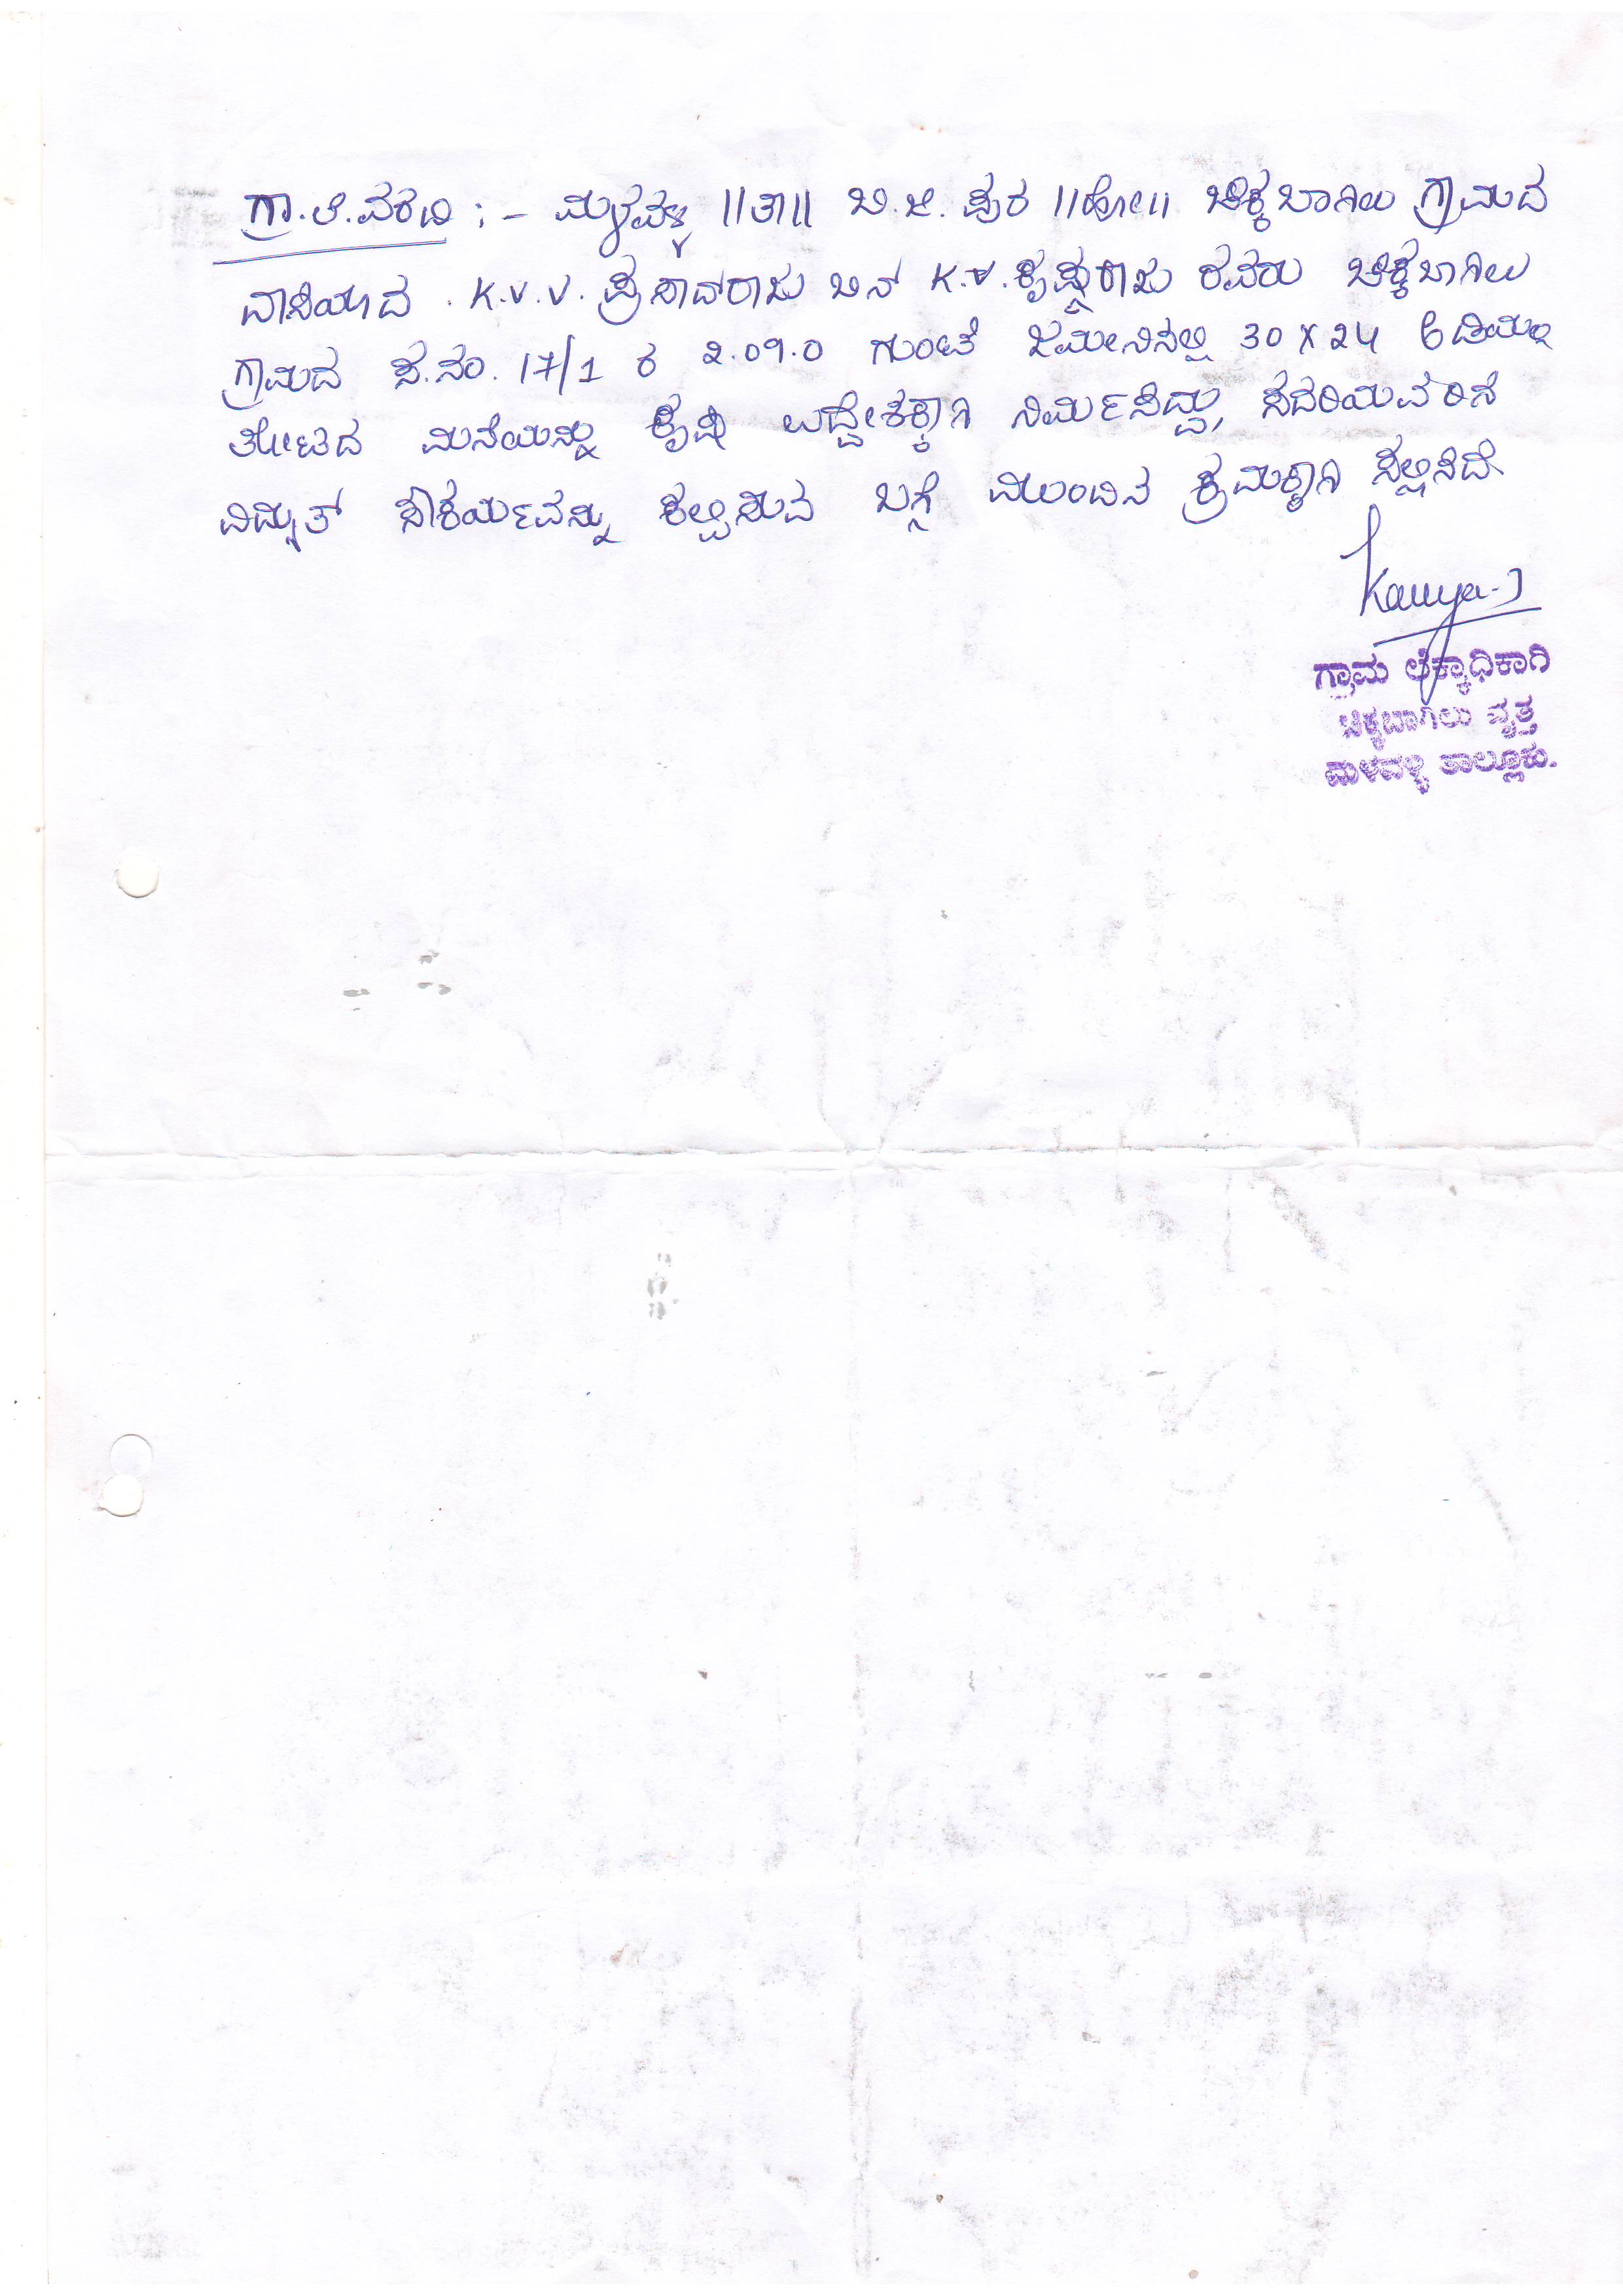 ಗ್ರಾ.ಲೆ.ವರದಿ :- ಮಳವಳ್ಳಿ ||ತಾ|| ಬಿ.ಜಿ. ಪುರ ||ಹೋ|| ಚಿಕ್ಕಬಾಗಿಲು ಗ್ರಾಮದ
ವಾಸಿಯಾದ . K.V.V. ಪ್ರಸಾದ್‌ರಾಜು ಬಿನ್ K.V.ಕೃಷ್ಣರಾಜು ರವರು ಚಿಕ್ಕಬಾಗಿಲು
ಗ್ರಾಮದ ಸ.ನಂ. 17/1 ರ 2.09.0 ಗುಂಟೆ ಜಮೀನಿನಲ್ಲಿ 30 X 24 ಅಡಿಯಲ್ಲಿ
ತೋಟದ ಮನೆಯನ್ನು ಕೃಷಿ ಉದ್ದೇಶಕ್ಕಾಗಿ ನಿರ್ಮಿಸಿದ್ದು, ಸದರಿಯವರಿಗೆ
ವಿದ್ಯುತ್ ಸೌಕರ್ಯವನ್ನು ಕಲ್ಪಿಸುವ ಬಗ್ಗೆ ಮುಂದಿನ ಕ್ರಮಕ್ಕಾಗಿ ಸಲ್ಲಿಸಿದೆ.
Kavya.J
ಗ್ರಾಮ ಲೆಕ್ಕಾಧಿಕಾರಿ
ಚಿಕ್ಕಬಾಗಿಲು ವೃತ್ತ
ಮಳವಳ್ಳಿ ತಾಲ್ಲೂಕು.